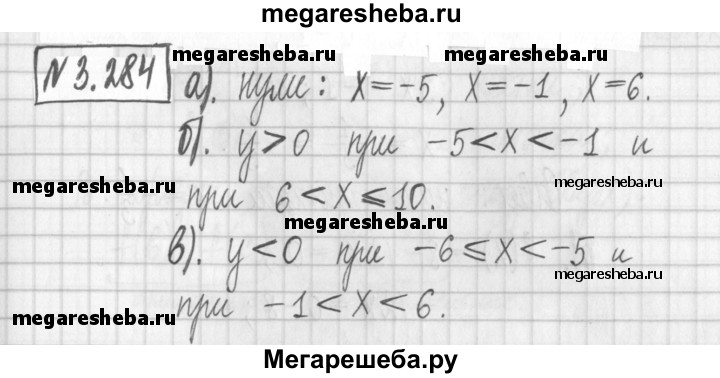 megaresheba.ru
N 3.284 а). нули: x=-5, x=-1, x=6.
megaresheba.ru megaresheba.ru
б). y>0 при -5<x<-1 и
megaresheba.ru megaresheba.ru
при 6<x≤10.
megaresheba.ru
в). y<0 при -6≤x<-5 и
megaresheba.ru
при -1<x<6.
megaresheba.ru megaresheba.ru
Мегарешеба.ру